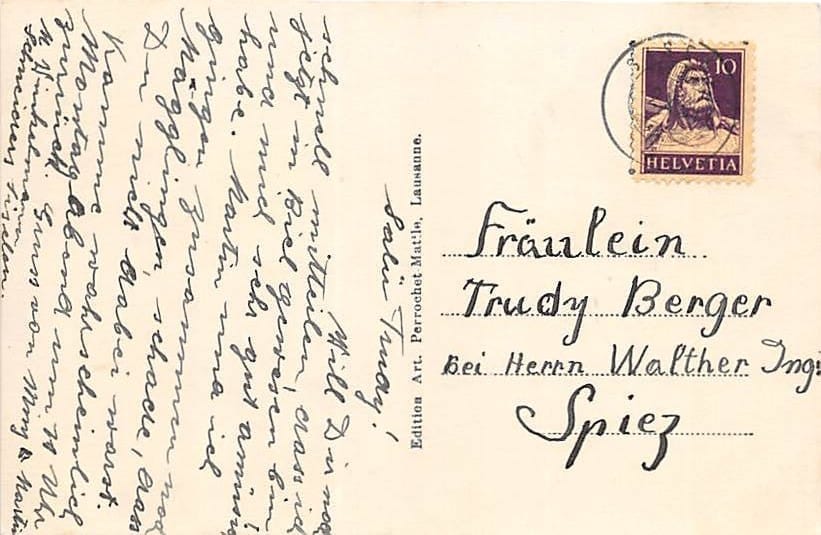 Salü Trudy!
Will Dir noch
schnell mitteilen, dass ich
jetzt in Biel gewesen bin
und mich sehr gut amüsiert
habe. Martin und ich
gingen zusammen nach
Magglingen, schade, dass
Du nicht dabei warst.
Komme wahrscheinlich
Montag abend um 10 Uhr
zurück. Gruss von Miny & Martin
Edition Art. Perrochet Matile, Lausanne.
10
HELVETIA
Fräulein
Trudy Berger
bei Herrn Walther Ing.
Spiez